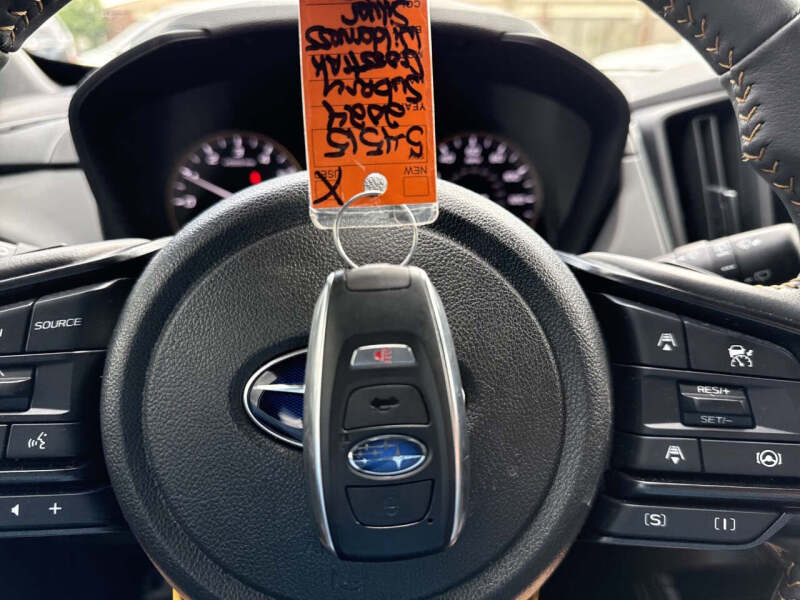 NEW
USED
X
S4515
YEAR
2024
Subaru
Crosstrek
Wilderness
Silver
SOURCE
RES/+
SET/-
[S]
[I]
+